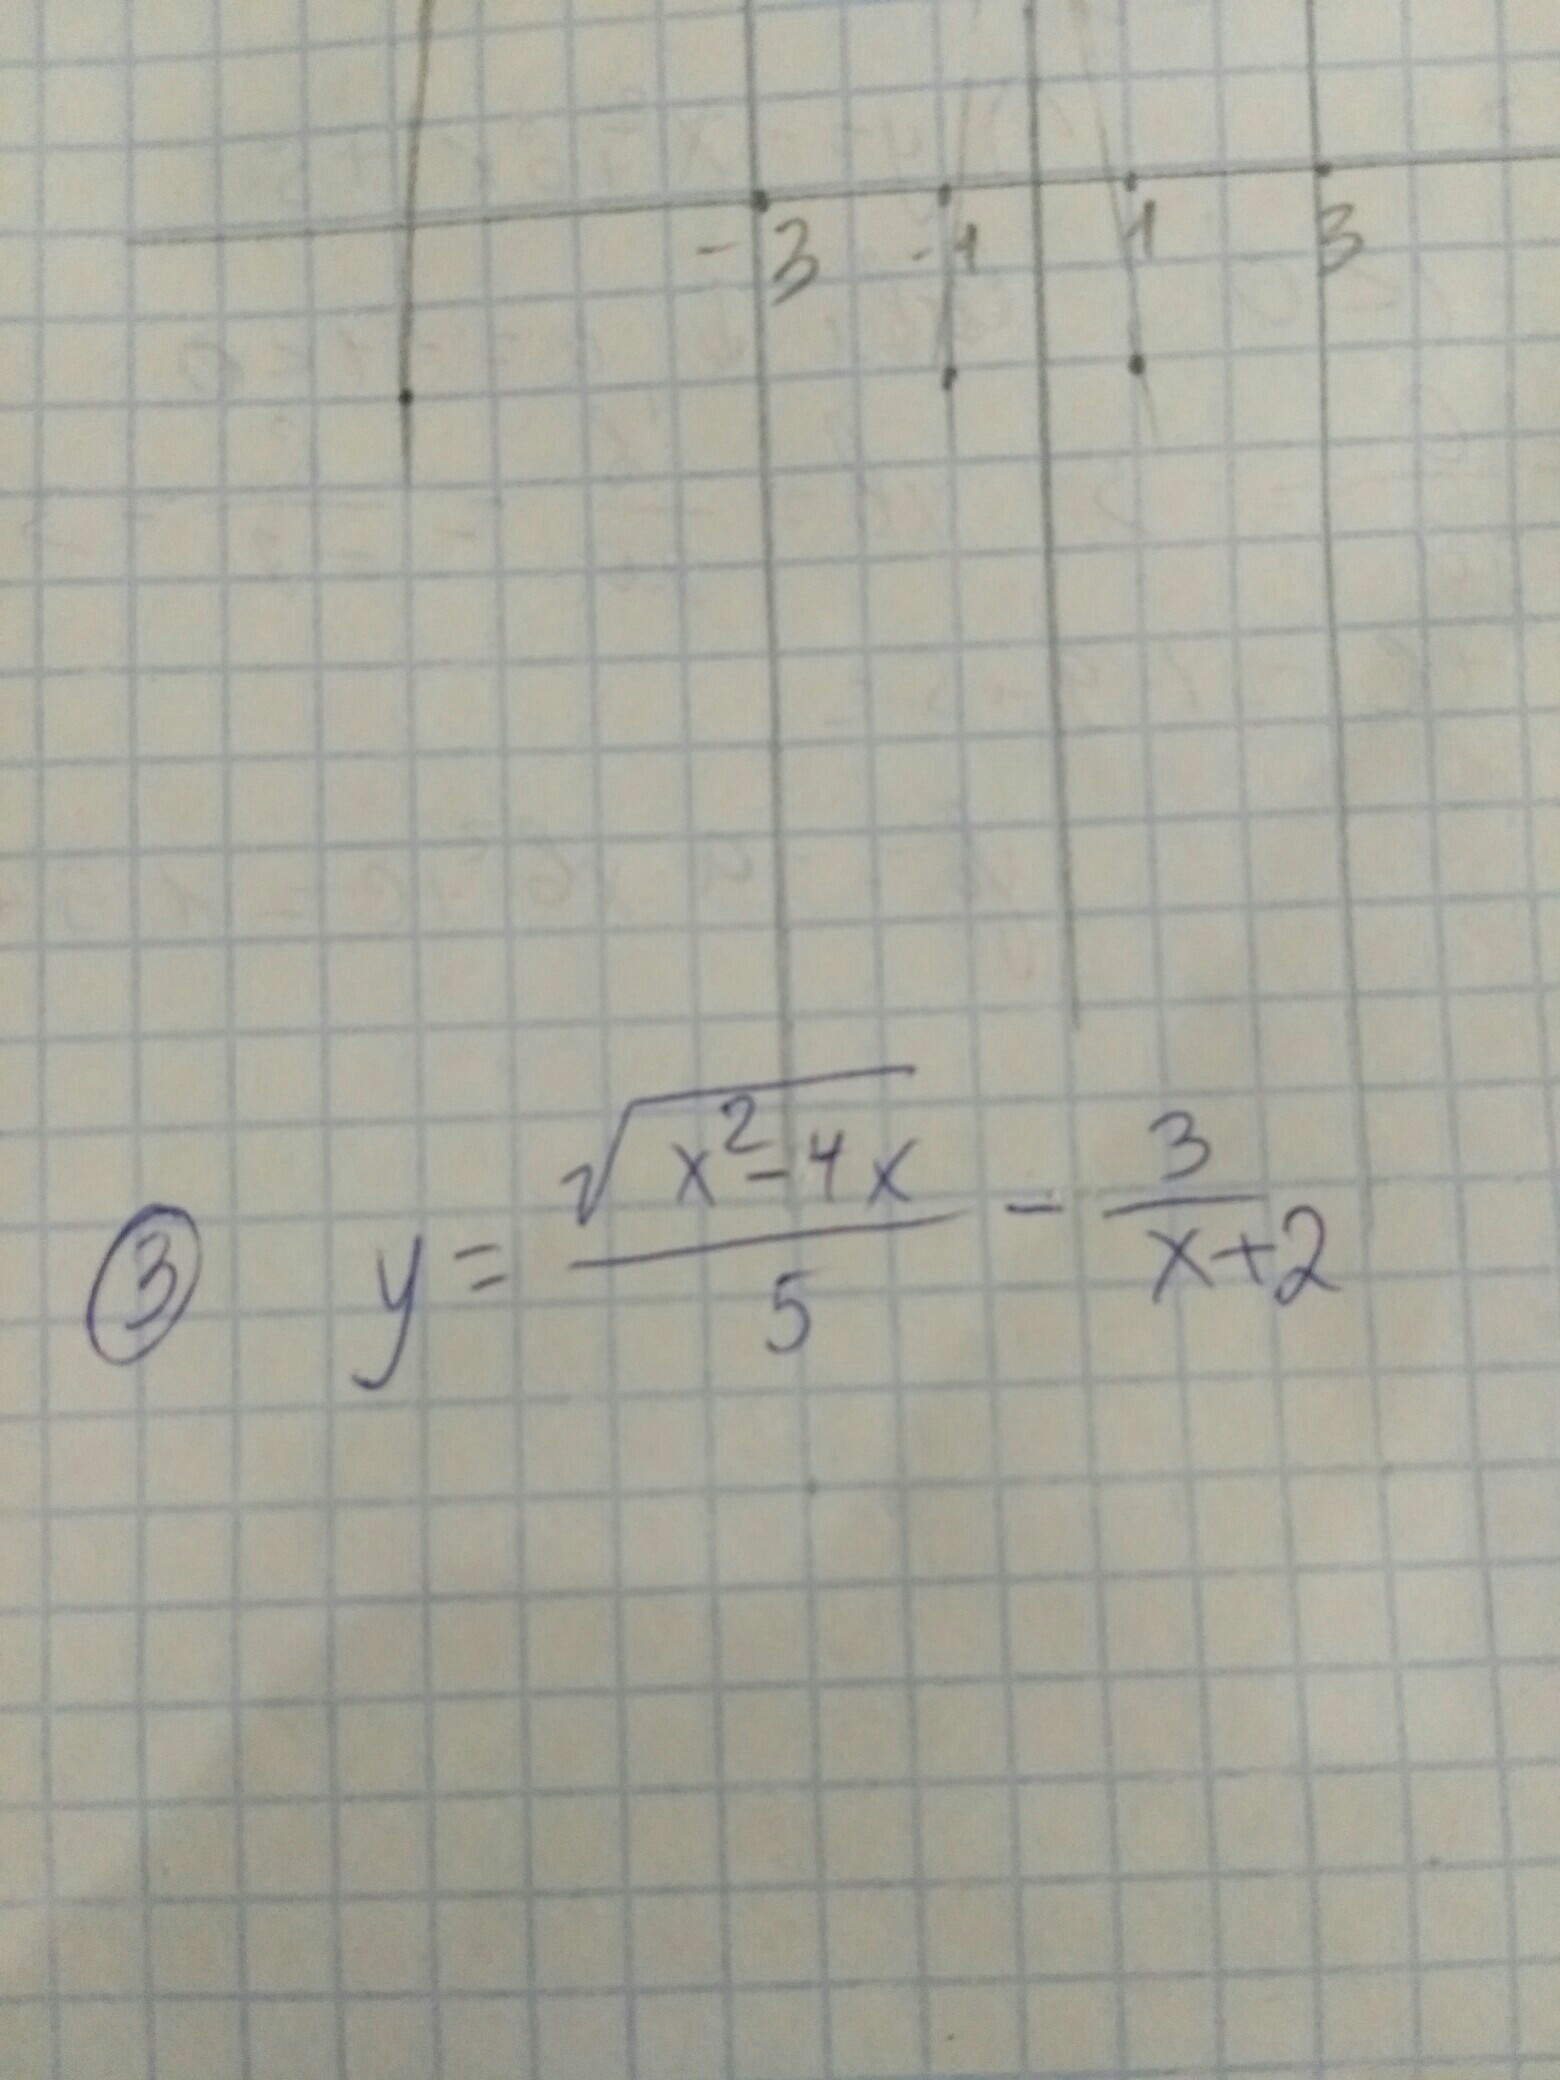 -3 -1 1 3
③ y = √(x² - 4x) / 5 - 3 / (x+2)